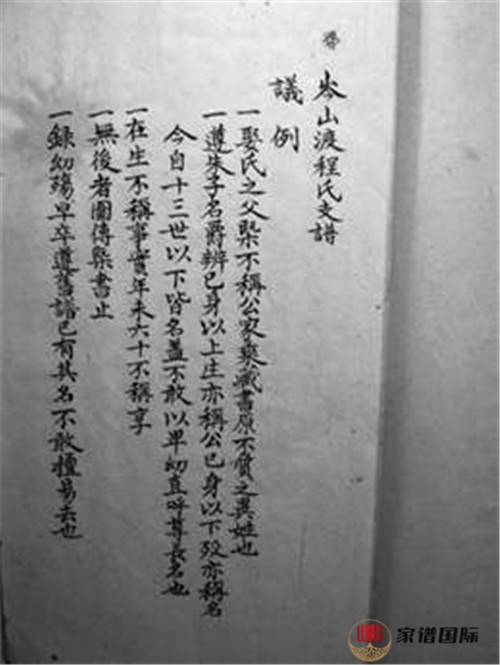 岑山渡程氏支譜
議例
一娶氏之父槩不稱公家乘藏書原不質之異姓也
一遵朱子名爵辨己身以上庄亦稱公己身以下歿亦稱名
今自十三世以下皆名蓋不敢以卑幼直呼尊長名也
一在生不稱事實年未六十不稱享
一無後者圖傳槩書止
一錄幼殤早卒遵舊譜已有其名不敢擅易去也
家谱国际